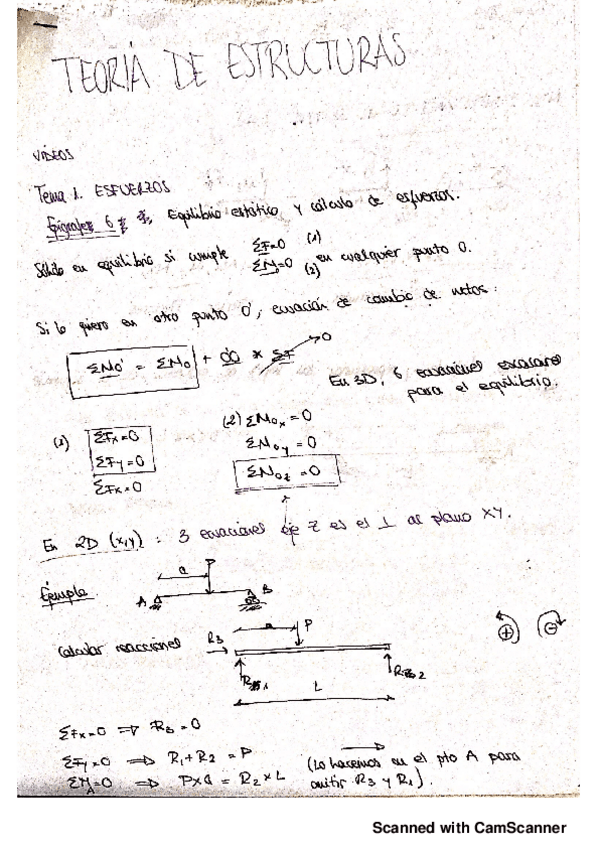 TEORÍA DE ESTRUCTURAS
VÍDEOS
Tema 1. ESFUERZOS
6 y 7, Equilibrio estático y cálculo de esfuerzos.
Sólido en equilibrio si cumple ΣF=0 (1)
ΣM₀=0 (2) en cualquier punto O.
Si lo quiero en otro punto O', ecuación de cambio de :
ΣMo' = ΣMo + OO' × ΣF → 0
En 3D, 6 ecuaciones escalares
para el equilibrio.
(1) ΣFx=0
ΣFy=0
ΣFx=0
(2) ΣMox = 0
ΣMoy = 0
ΣMoz = 0
En 2D (x,y) : 3 ecuaciones eje z es el ⊥ al plano XY.
Ejemplo
a P
A B
Calcular reacciones R3 a P
R1 R2
L
+ -
ΣFx=0 ⇒ R3=0
ΣFy=0 ⇒ R1+R2 = P
ΣMA=0 ⇒ P×a = R2×L
(Lo hacemos en el pto A para
omitir R3 y R1).
Scanned with CamScanner